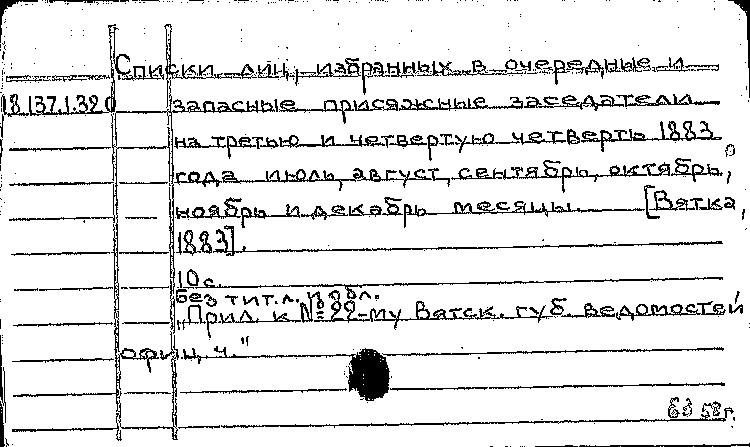 Списки лиц, избранных в очередные и
18.137.1.320 запасные присяжные заседатели
на третью и четвертую четверть 1883
года июль, август, сентябрь, октябрь,
ноябрь и декабрь месяцы. [Вятка,
1883].
10 с.
без тит. л. и обл.
"Прил. к № 22-му Вятск. губ. ведомостей
офиц. ч."
58 г.